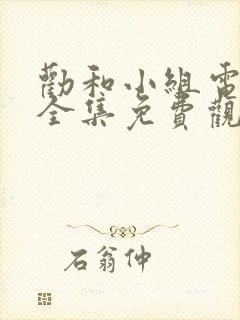 勸和小組電
全集免費觀
石翁仲